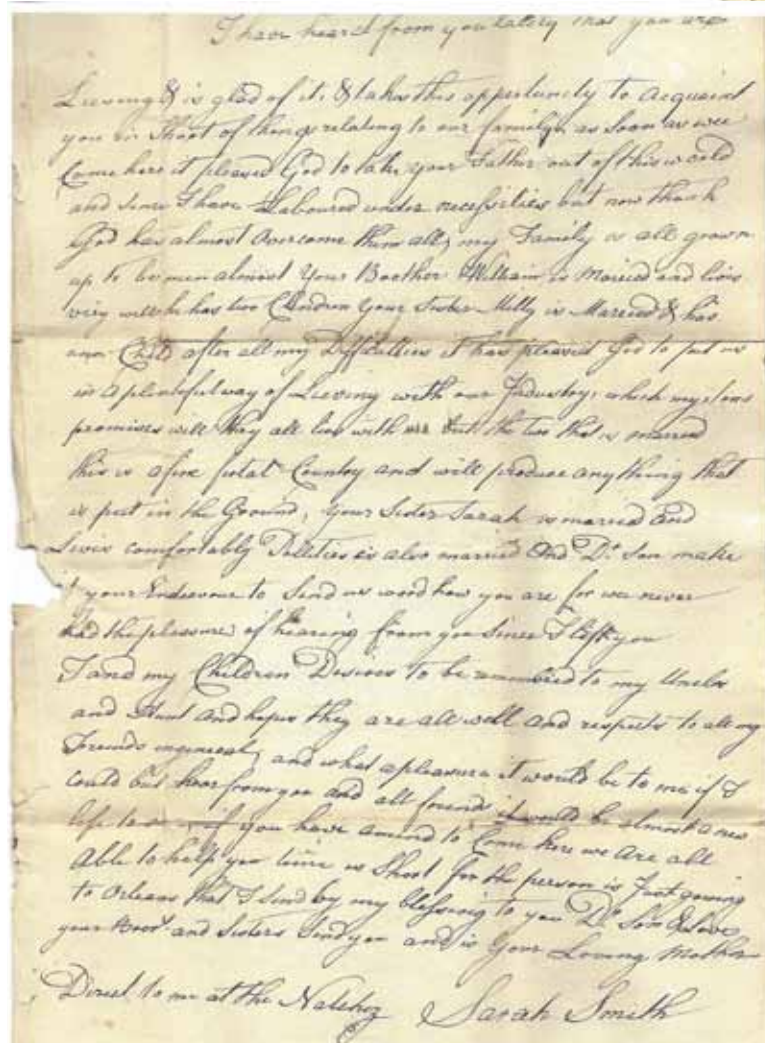 I have heard from you Lattery that you are
Lieving & is glad of it. & takes this oppertunity to acquaint
you in Shoot of things relating to our family, as Soon as wee
Came here it pleased God to take your Father out of this world
and since I have Laboured under necessities but now thank
God has almost Overcome them all, my Family is all grown
up to be men almost Your Boother William is Maried and lives
very well he has two Children Your Sister Milly is Married & has
one Child after all my Difficulties it has pleased God to put us
in a plentiful way of Lieving with our Industry, which my sons
promises well they all live with but the two that is married
this is a fine Country and will produce any thing that
is put in the Ground, your Sister Sarah is married And
Livis comfortably is also married And Dr. Son make
it your Endeavour to Send us word how you are for we never
had the pleasure of hearing from you Since I left you
I and my Children Desires to be remembred to my Uncles
and Aunt And hopes they are all well And respects to all my
Freinds ingeneral, and what a pleasure it would be to me if I
could but hear from you and all friends it would be almost a new
life to if you have amind to Come here we Are all
Able to help you time is Shoot for the person is Just going
to Orleans that I Send by my blessing to you Dr. Son & Love
your and Sisters Send you and is Your Loving Mother
Direct to me at the Natchez Sarah Smith